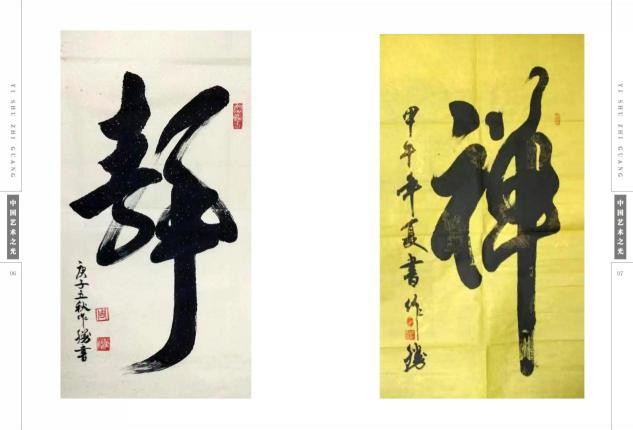 YI SHU ZHI GUANG
中国艺术之光
06
静
庚子五秋作勝書
禅
甲午年夏書作
勝
YI SHU ZHI GUANG
中国艺术之光
07